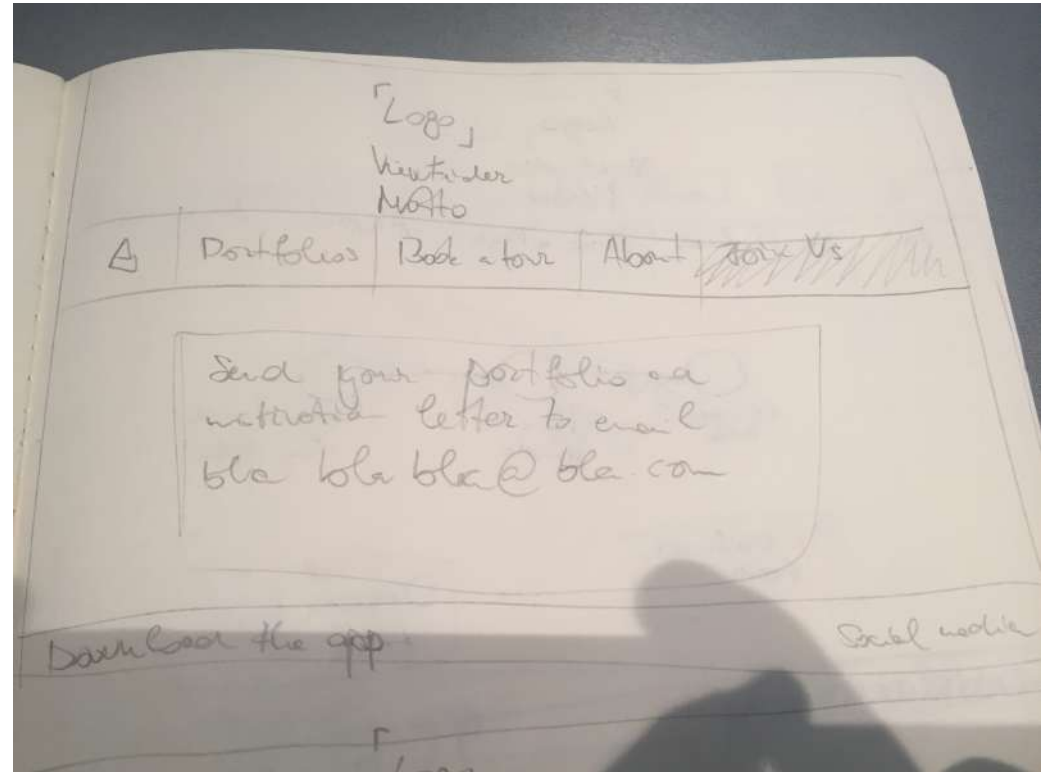 「Logo」
Viewfinder
Motto
Portfolios Book a tour About Join Us
Send your portfolio and
motivation letter to email
bla bla bla@bla.com
Download the app
Social media
Logo